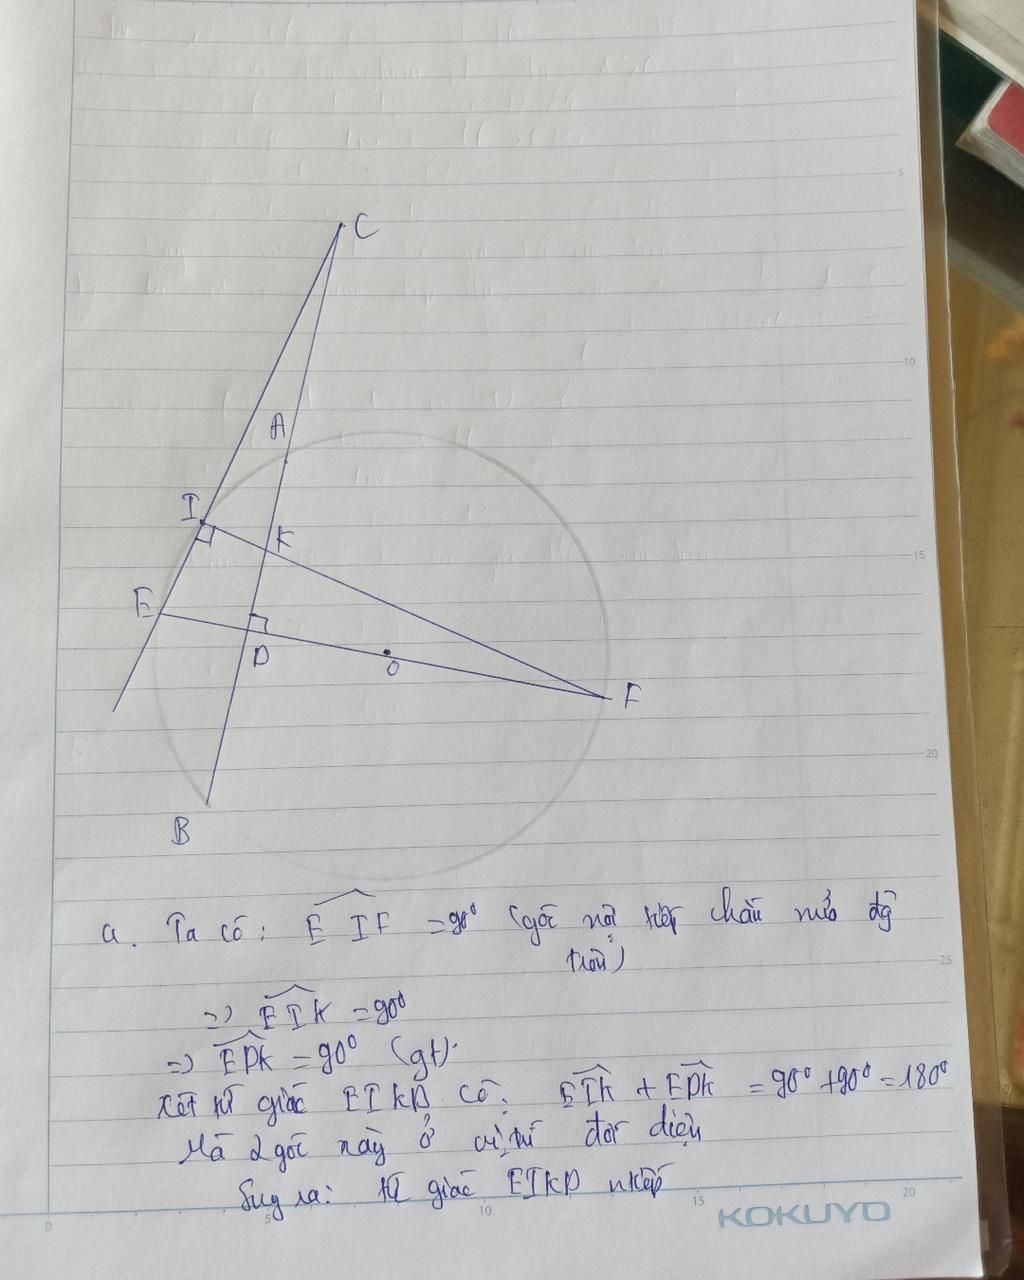 C
A
I
K
E
D
O
F
B
5
10
15
20
25
a. Ta có: EIF = 90° (góc nội tiếp chắn nửa đg
tròn)
=> EIK = 90°
=> EDK = 90° (gt).
Xét tứ giác EIKD có: EIK + EDK = 90° + 90° = 180°
Mà 2 góc này ở vị trí đối diện
Suy ra: tứ giác EIKD ntiếp
0 5 10 15 20
KOKUYO